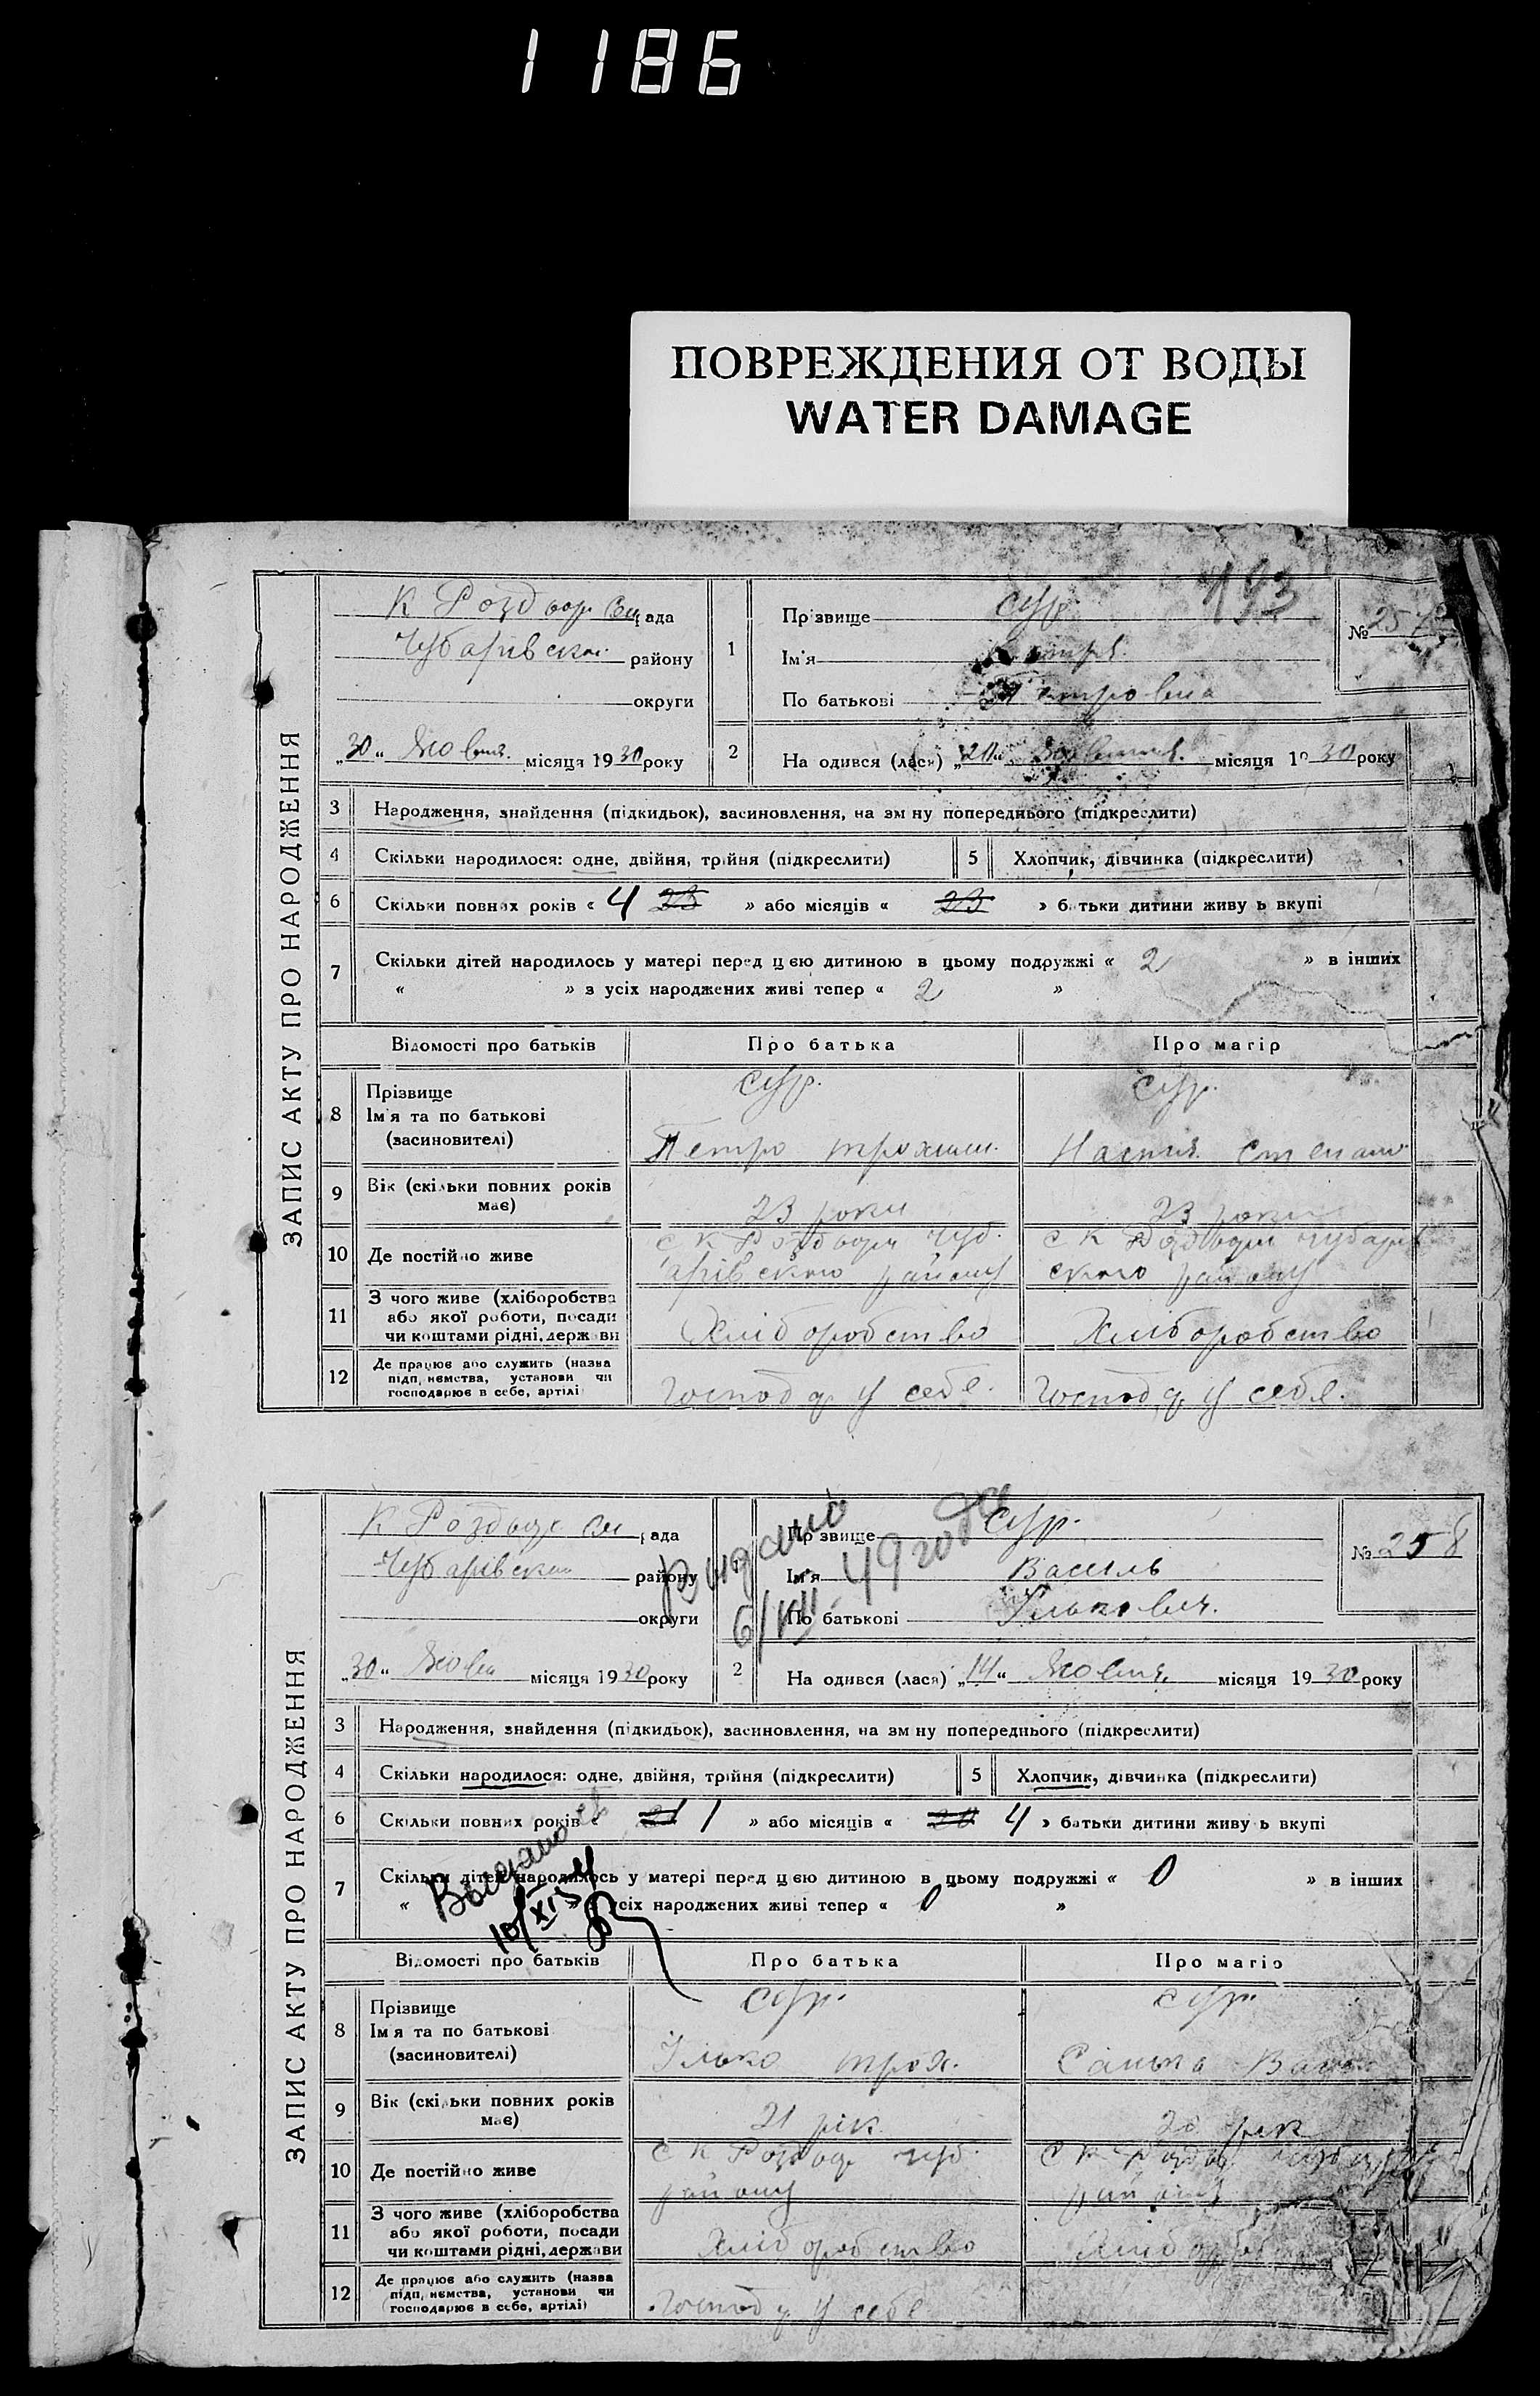 1186
ПОВРЕЖДЕНИЯ ОТ ВОДЫ
WATER DAMAGE
ЗАПИС АКТУ ПРО НАРОДЖЕННЯ
К Роздор Сел рада
Чубарівськ. району
округи
„30“ Жовтня. місяця 1930 року
193
№ 257
1 Прізвище Сур.
Ім'я
По батькові Петровна
2 На одився (лася) „20“ Жовтня. місяця 1930 року
3 Народження, знайдення (підкидьок), засиновлення, на зм ну попереднього (підкреслити)
4 Скільки народилося: одне, двійня, трійня (підкреслити) 5 Хлопчик, дівчинка (підкреслити)
6 Скільки повних років « 4 23 » або місяців « 23 » батьки дитини живу ь вкупі
7 Скільки дітей народилось у матері перед цією дитиною в цьому подружжі « 2 » в інших
« » з усіх народжених живі тепер « 2 »
Відомості про батьків Про батька Про матір
8 Прізвище Сур. Сур.
Ім'я та по батькові
(засиновителі) Петро Трохим. Настя Степано
9 Вік (скільки повних років має) 23 роки 23 роки
10 Де постійно живе с К Роздори Чуб. с К Роздори Чубарів
арівського району ського району
11 З чого живе (хліборобства
або якої роботи, посади
чи коштами рідні, держави Хліборобство Хліборобство
12 Де працює або служить (назва
підп, нємства, установи чи
господарює в себе, артілі Господ у себе. Господ у себе.
ЗАПИС АКТУ ПРО НАРОДЖЕННЯ
К Роздор Сел рада
Чубарівськ району
округи
„30“ Жовтн місяця 1930 року
видано
6/XII 49 года
№ 258
1 Прізвище Сур.
Ім'я Василь
По батькові Ількович.
2 На одився (лася) „14“ Жовтня. місяця 1930 року
3 Народження, знайдення (підкидьок), засиновлення, на зм ну попереднього (підкреслити)
4 Скільки народилося: одне, двійня, трійня (підкреслити) 5 Хлопчик, дівчинка (підкреслити)
6 Скільки повних років « 21 1 » або місяців « 20 4 » батьки дитини живу ь вкупі
7 Скільки дітей народилось у матері перед цією дитиною в цьому подружжі « 0 » в інших
« » з усіх народжених живі тепер « 0 »
Выдано
10/XI 54
Відомості про батьків Про батька Про матір
8 Прізвище Сур. Сур.
Ім'я та по батькові
(засиновителі) Ілько Трох. Санька
9 Вік (скільки повних років має) 21 рік 20 рік
10 Де постійно живе с К Роздор Чуб. с К
району району
11 З чого живе (хліборобства
або якої роботи, посади
чи коштами рідні, держави Хліборобство
12 Де працює або служить (назва
підп, нємства, установи чи
господарює в себе, артілі) Господ у себе